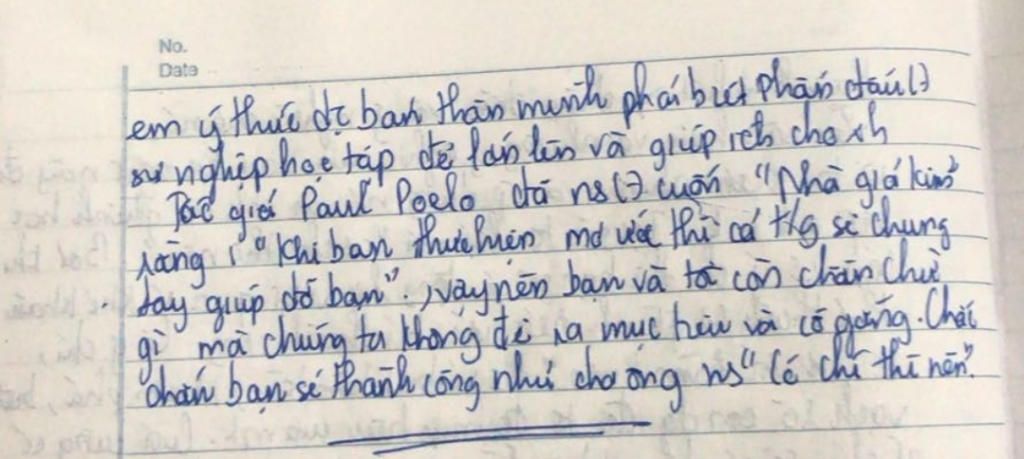 No.
Date
em ý thức đc bản thân mình phải biết phấn đấu (->)
sự nghiệp học tập để lớn lên và giúp ích cho xh
Tác giả Paul Poelo đã ns (->) cuốn "Nhà giả kim"
rằng : "Khi bạn thực hiện mơ ước thì cả tg sẽ chung
tay giúp đỡ bạn"., vậy nên bạn và tôi còn chần chừ
gì mà chúng ta không đề ra mục tiêu và cố gắng. Chắc
chắn bạn sẽ thành công như cha ông ns "Có chí thì nên".